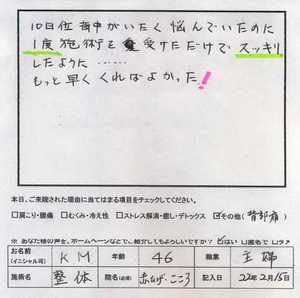 10日位背中がいたく悩んでいたのに
1度施術を受けただけでスッキリ
したように
もっと早くくればよかった!
本日、ご来院された理由に当てはまる項目をチェックしてください。
□肩こり・腰痛 □むくみ・冷え性 □ストレス解消・癒し・デトックス ☑その他(背部痛)
※あなた様の声を、ホームページなどで、ご紹介してもよろしいですか?☑はい □匿名で
お名前(イニシャル可) KM 年齢 46 職業 主婦
施術名 整体 院名(必須) こころ 記入日 22年2月15日